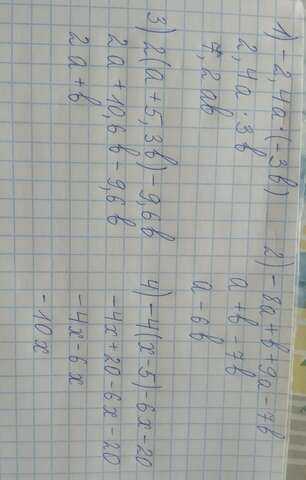 1) -2,4a·(-3b)
2,4a·3b
7,2ab
2) -8a+b+9a-7b
a+b-7b
a-6b
3) 2(a+5,3b)-9,6b
2a+10,6b-9,6b
2a+b
4) -4(x-5)-6x-20
-4x+20-6x-20
-4x-6x
-10x